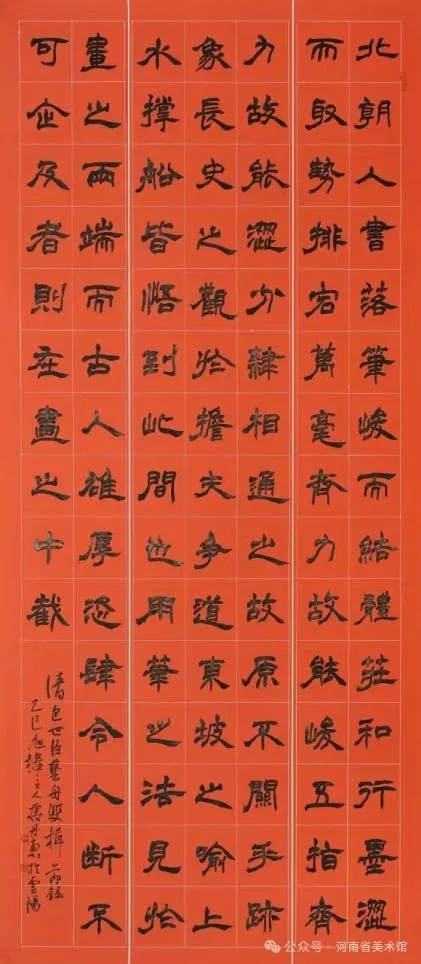 北朝人書落筆峻而結體莊和行墨澀
而取勢排宕萬毫齊力故能峻五指齊
力故能澀分隸相通之故原不關乎跡
象長史之觀於擔夫爭道東坡之喻上
水撐船皆悟到此間也用筆之法見於
畫之兩端而古人雄厚恣肆令人斷不
可企及者則在畫之中截
清包世臣藝舟雙楫 節錄
乙巳旭主人丹書於雲陽
公众号·河南省美术馆